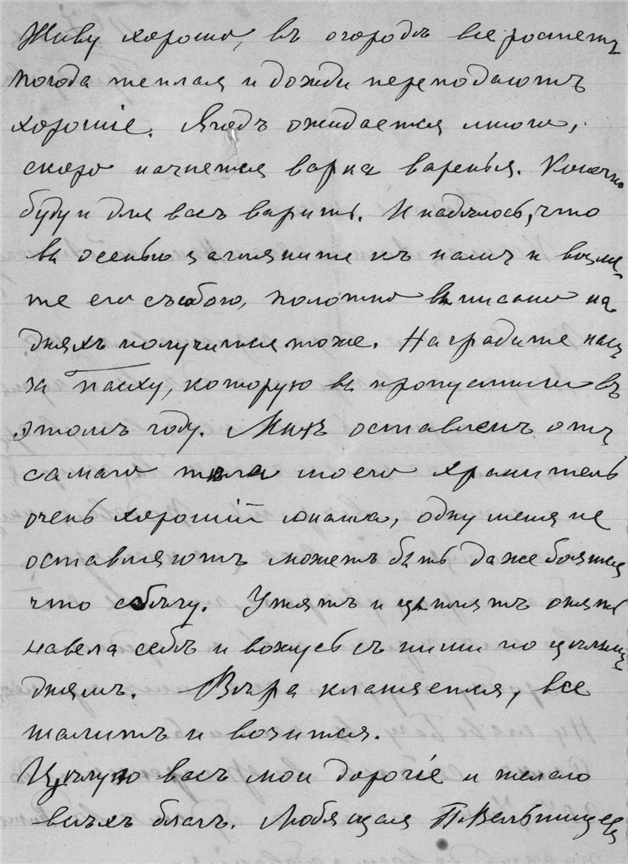 Живу хорошо, въ огородѣ все ростетъ
погода теплая и дожди перепадаютъ
хорошіе. Ягодъ ожидается много,
скоро начнется варка варенья. Конечно
буду и для васъ варить. И надѣюсь, что
вы осенью загляните къ намъ и возме
те его съ собою, полотно выписано на
дняхъ получится тоже. Наградите насъ
за пасху, которую вы пропустили въ
этомъ году. Мнѣ оставленъ отъ
самаго тѣла моего хранитель
очень хорошій юноша, одну меня не
оставляютъ можетъ быть даже боятся
что сбѣгу. Утятъ и цыплятъ опять
навела себѣ и вожусь съ ними по цѣлымъ
днямъ. Вѣра кланяется, все
шалитъ и возится.
Цѣлую васъ мои дорогіе и желаю
всѣхъ благъ. Любящая П.